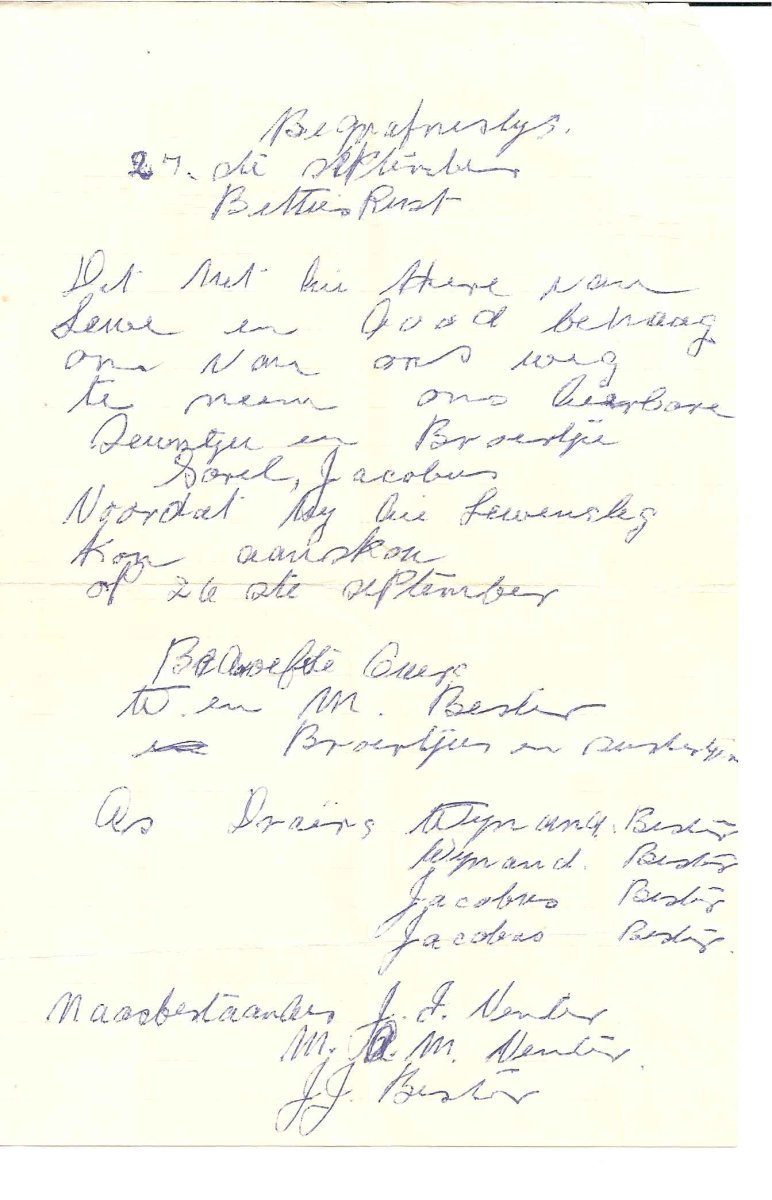 Begrafneslys.
27. ste september
Betties Rust
Dit het die Here van
Lewe en Dood behaag
om van ons weg
te neem ons dierbare
Seuntjie en Broertjie
Jacobus
Voordat hy die Lewenslig
kon aanskou
op 26 ste september
Beroefde Ouers
W. en M. Bester
Broertjies en sustertjies
As Draërs Wynand. Bester
Wynand. Bester
Jacobus Bester
Jacobus Bester.
Naasbestaandes J. J. Venter
M. M. Venter.
J.J. Bester